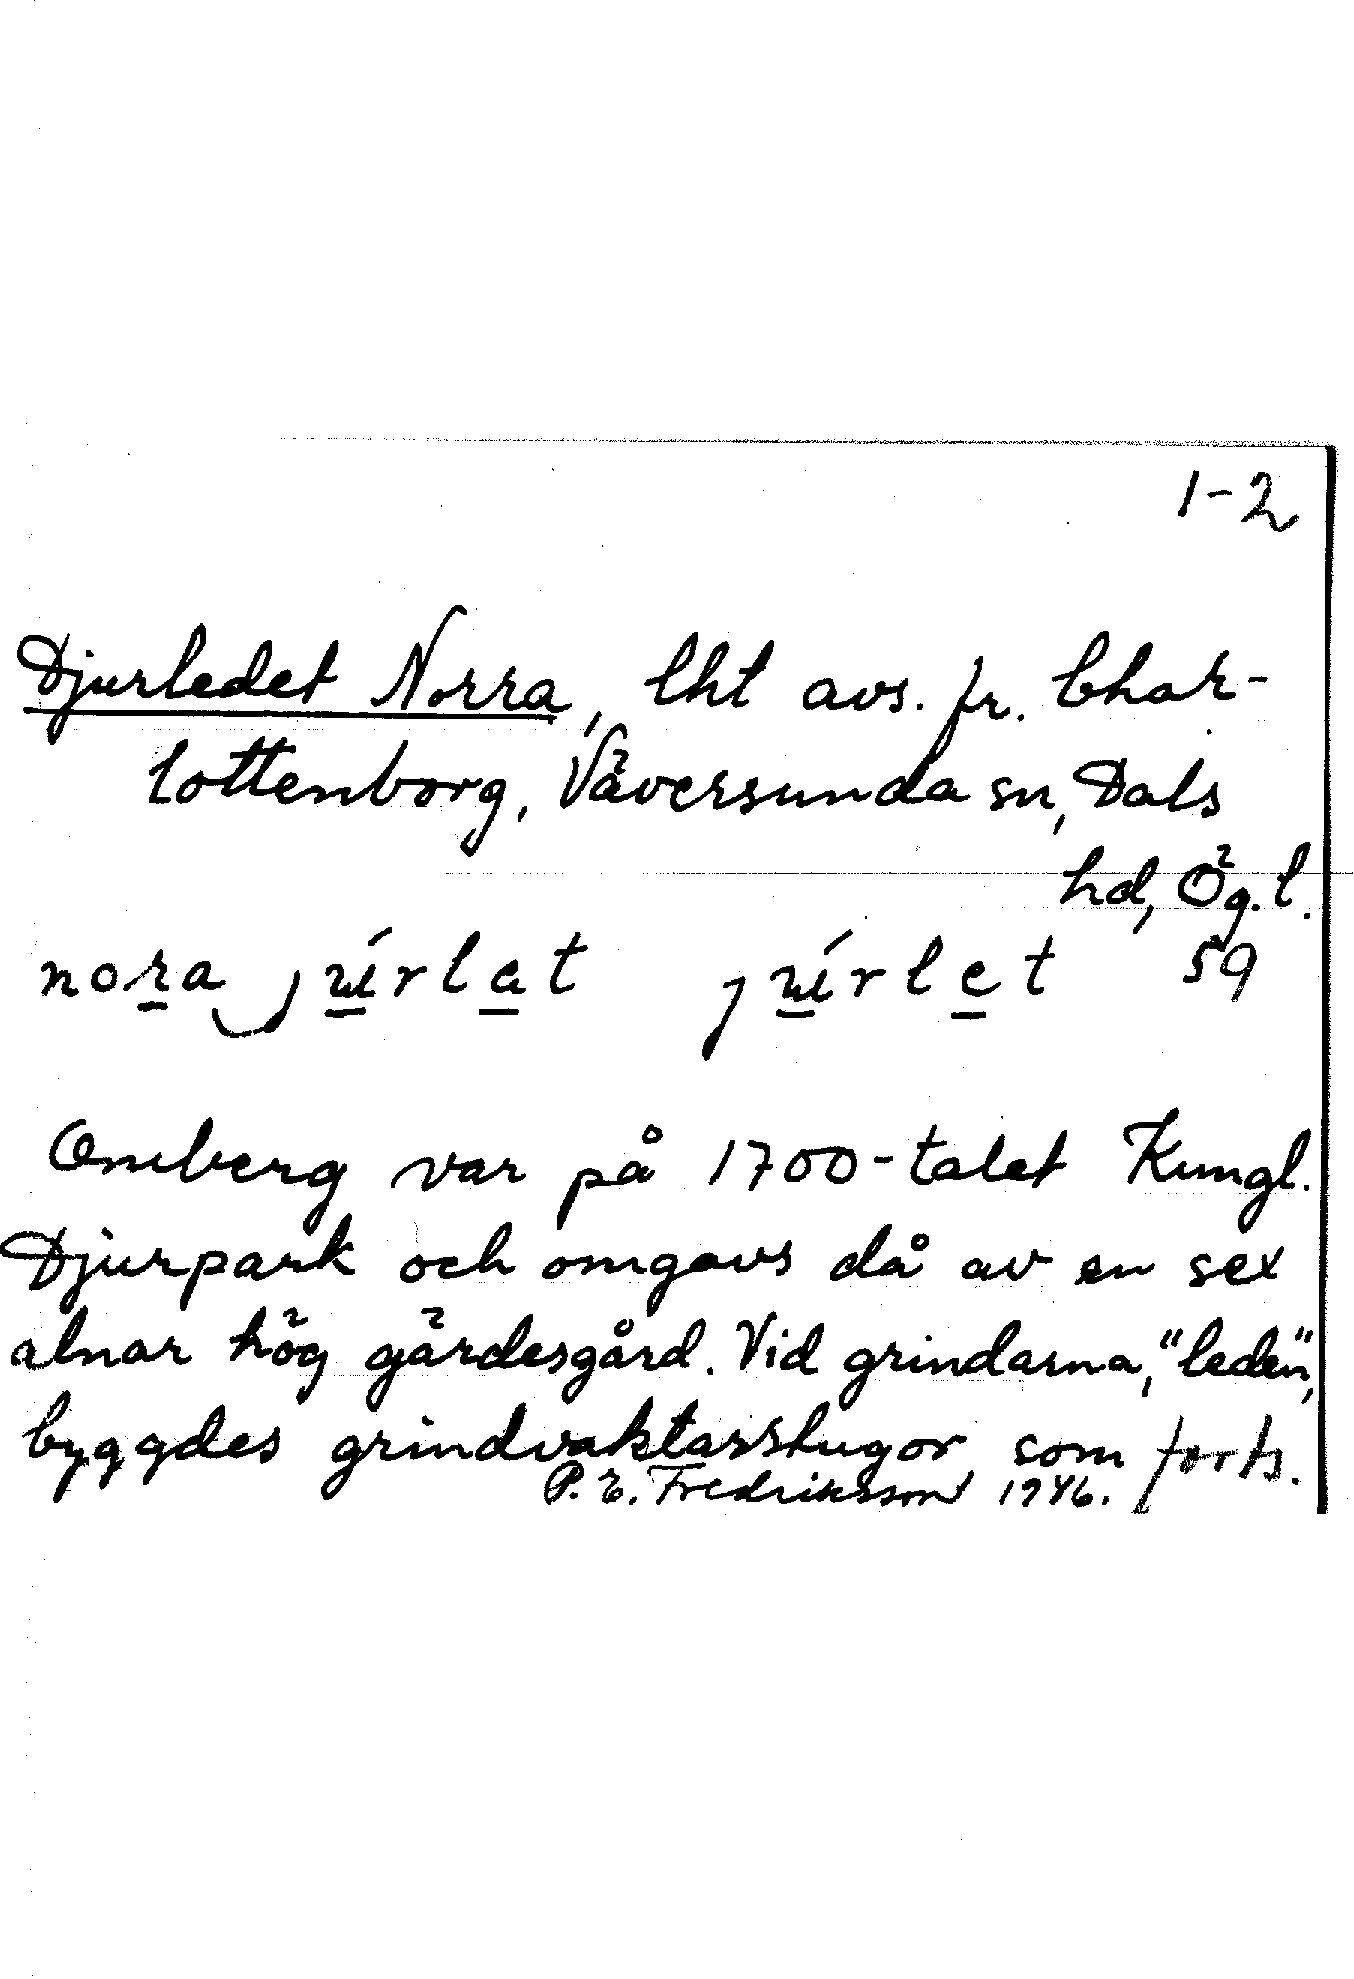 1-2
Djurledet Norra, lht avs. fr. Char-
lottenborg, Väversunda sn, Dals
hd, Ög. l.
nora júrlet júrlet 59
Omberg var på 1700-talet Kungl.
Djurpark och omgavs då av en sex
alnar hög gärdesgård. Vid grindarna, "leden",
byggdes grindvaktarstugor som forts.
P. E. Fredriksson 1946.